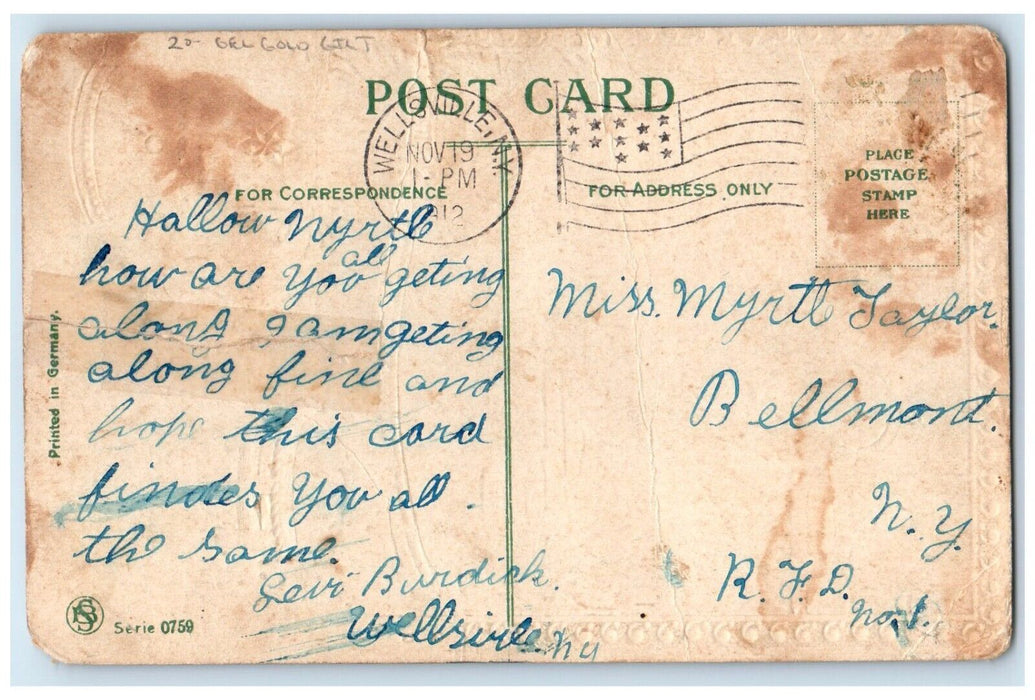 20- GEL GOLD GILT
POST CARD
WELLSVILLE, N.Y.
NOV 19
1-PM
1912
FOR CORRESPONDENCE
FOR ADDRESS ONLY
PLACE
POSTAGE
STAMP
HERE
Hallow Myrtle
all
how are you geting
along I am geting
along fine and
hope this card
findes you all
the same.
Levi Burdick.
Wellsvile. N y
Miss. Myrtle Taylor.
Bellmont.
N. Y.
R. F. D.
No. 1.
Printed in Germany.
Serie 0759